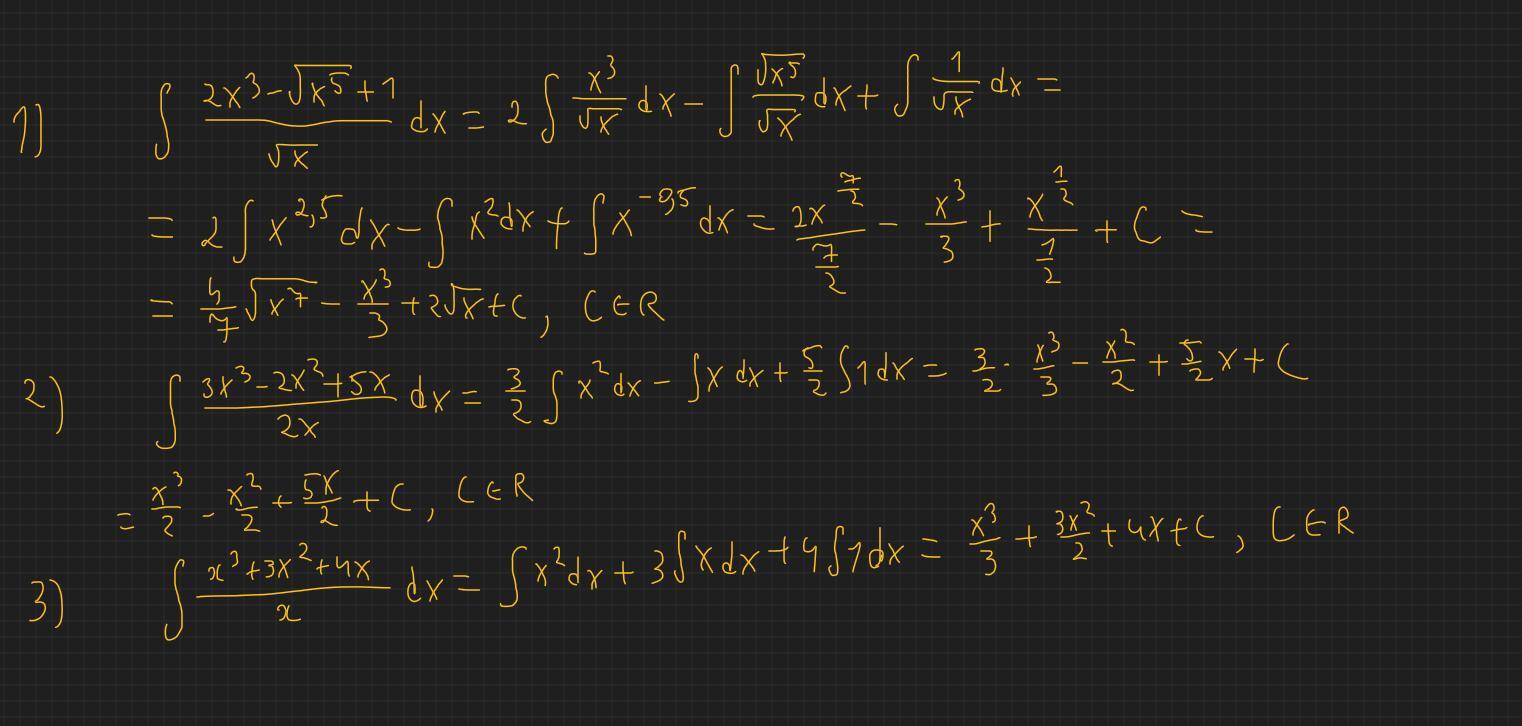 1) ∫ (2x³-√x⁵+1)/√x dx = 2∫ x³/√x dx - ∫ √x⁵/√x dx + ∫ 1/√x dx =
= 2∫x^2,5 dx - ∫x²dx + ∫x^-0,5 dx = 2x^(7/2)/(7/2) - x³/3 + x^(1/2)/(1/2) + C =
= 4/7 √x⁷ - x³/3 + 2√x + C, C∈R
2) ∫ (3x³-2x²+5x)/2x dx = 3/2 ∫x²dx - ∫x dx + 5/2 ∫1dx = 3/2 · x³/3 - x²/2 + 5/2 x + C
= x³/2 - x²/2 + 5x/2 + C, C∈R
3) ∫ (x³+3x²+4x)/x dx = ∫x²dx + 3∫x dx + 4∫1dx = x³/3 + 3x²/2 + 4x + C, C∈R